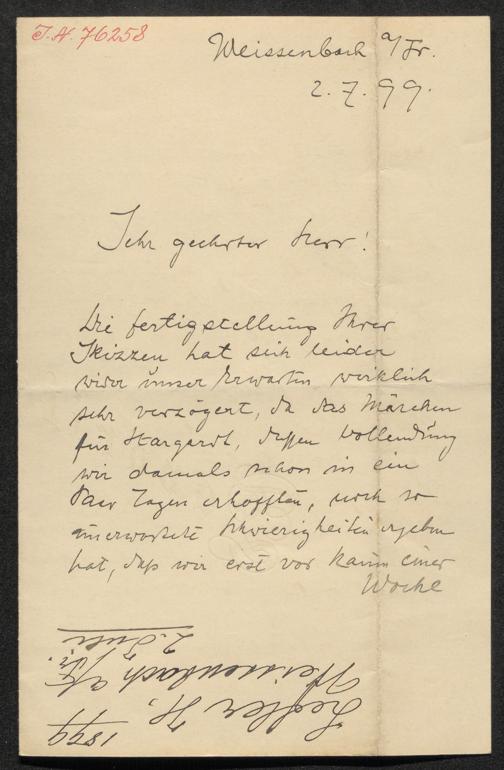 J.N. 76258
Weissenbach a/Tr.
2.7.99.
Sehr geehrter Herr!
Die fertigstellung Ihrer
Skizzen hat sich leider
wider unser Erwarten wirklich
sehr verzögert, da das Märchen
für Stargardt, dessen Vollendung
wir damals schon in ein
Paar Tagen erhofften, noch so
unerwartete Schwierigkeiten ergeben
hat, daß wir erst vor kaum einer
Woche
1899
Lefler H.,
Weissenbach a/d
Tr.
2. Juli